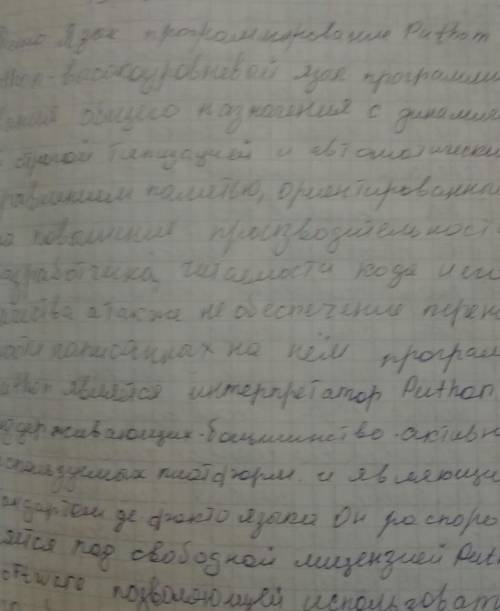 Язык программирования Python
thon-высокоуровневой язык программи
вания общего назначения с динамич
строгой типизацией и автоматически
равлением памятью, ориентированны
на повышение производительност
разработчика, читаемости кода и
чества а также на обеспечение перен
написанных на нём програм
ython являйся интерпретатор Puthon
оддерживающих большинство активн
спользуемых платформ и являющи
андартом де факто языка Он распоро
яйся под свободной лицензией Puth
oftware позволяющей использоват